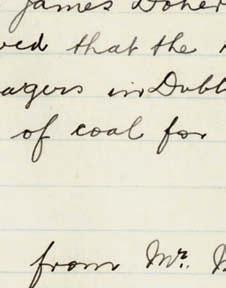 James Doher
ved that the
agers in Dubl
of coal for
from Mr.